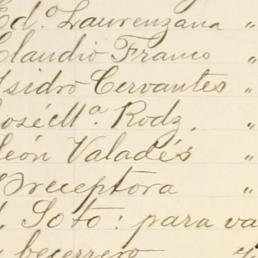 Ed.º Laurenzana "
Claudio Franco "
Isidro Cervantes "
José Mª. Rodz. "
León Valadés "
Preceptora "
Soto: para va
becerrero